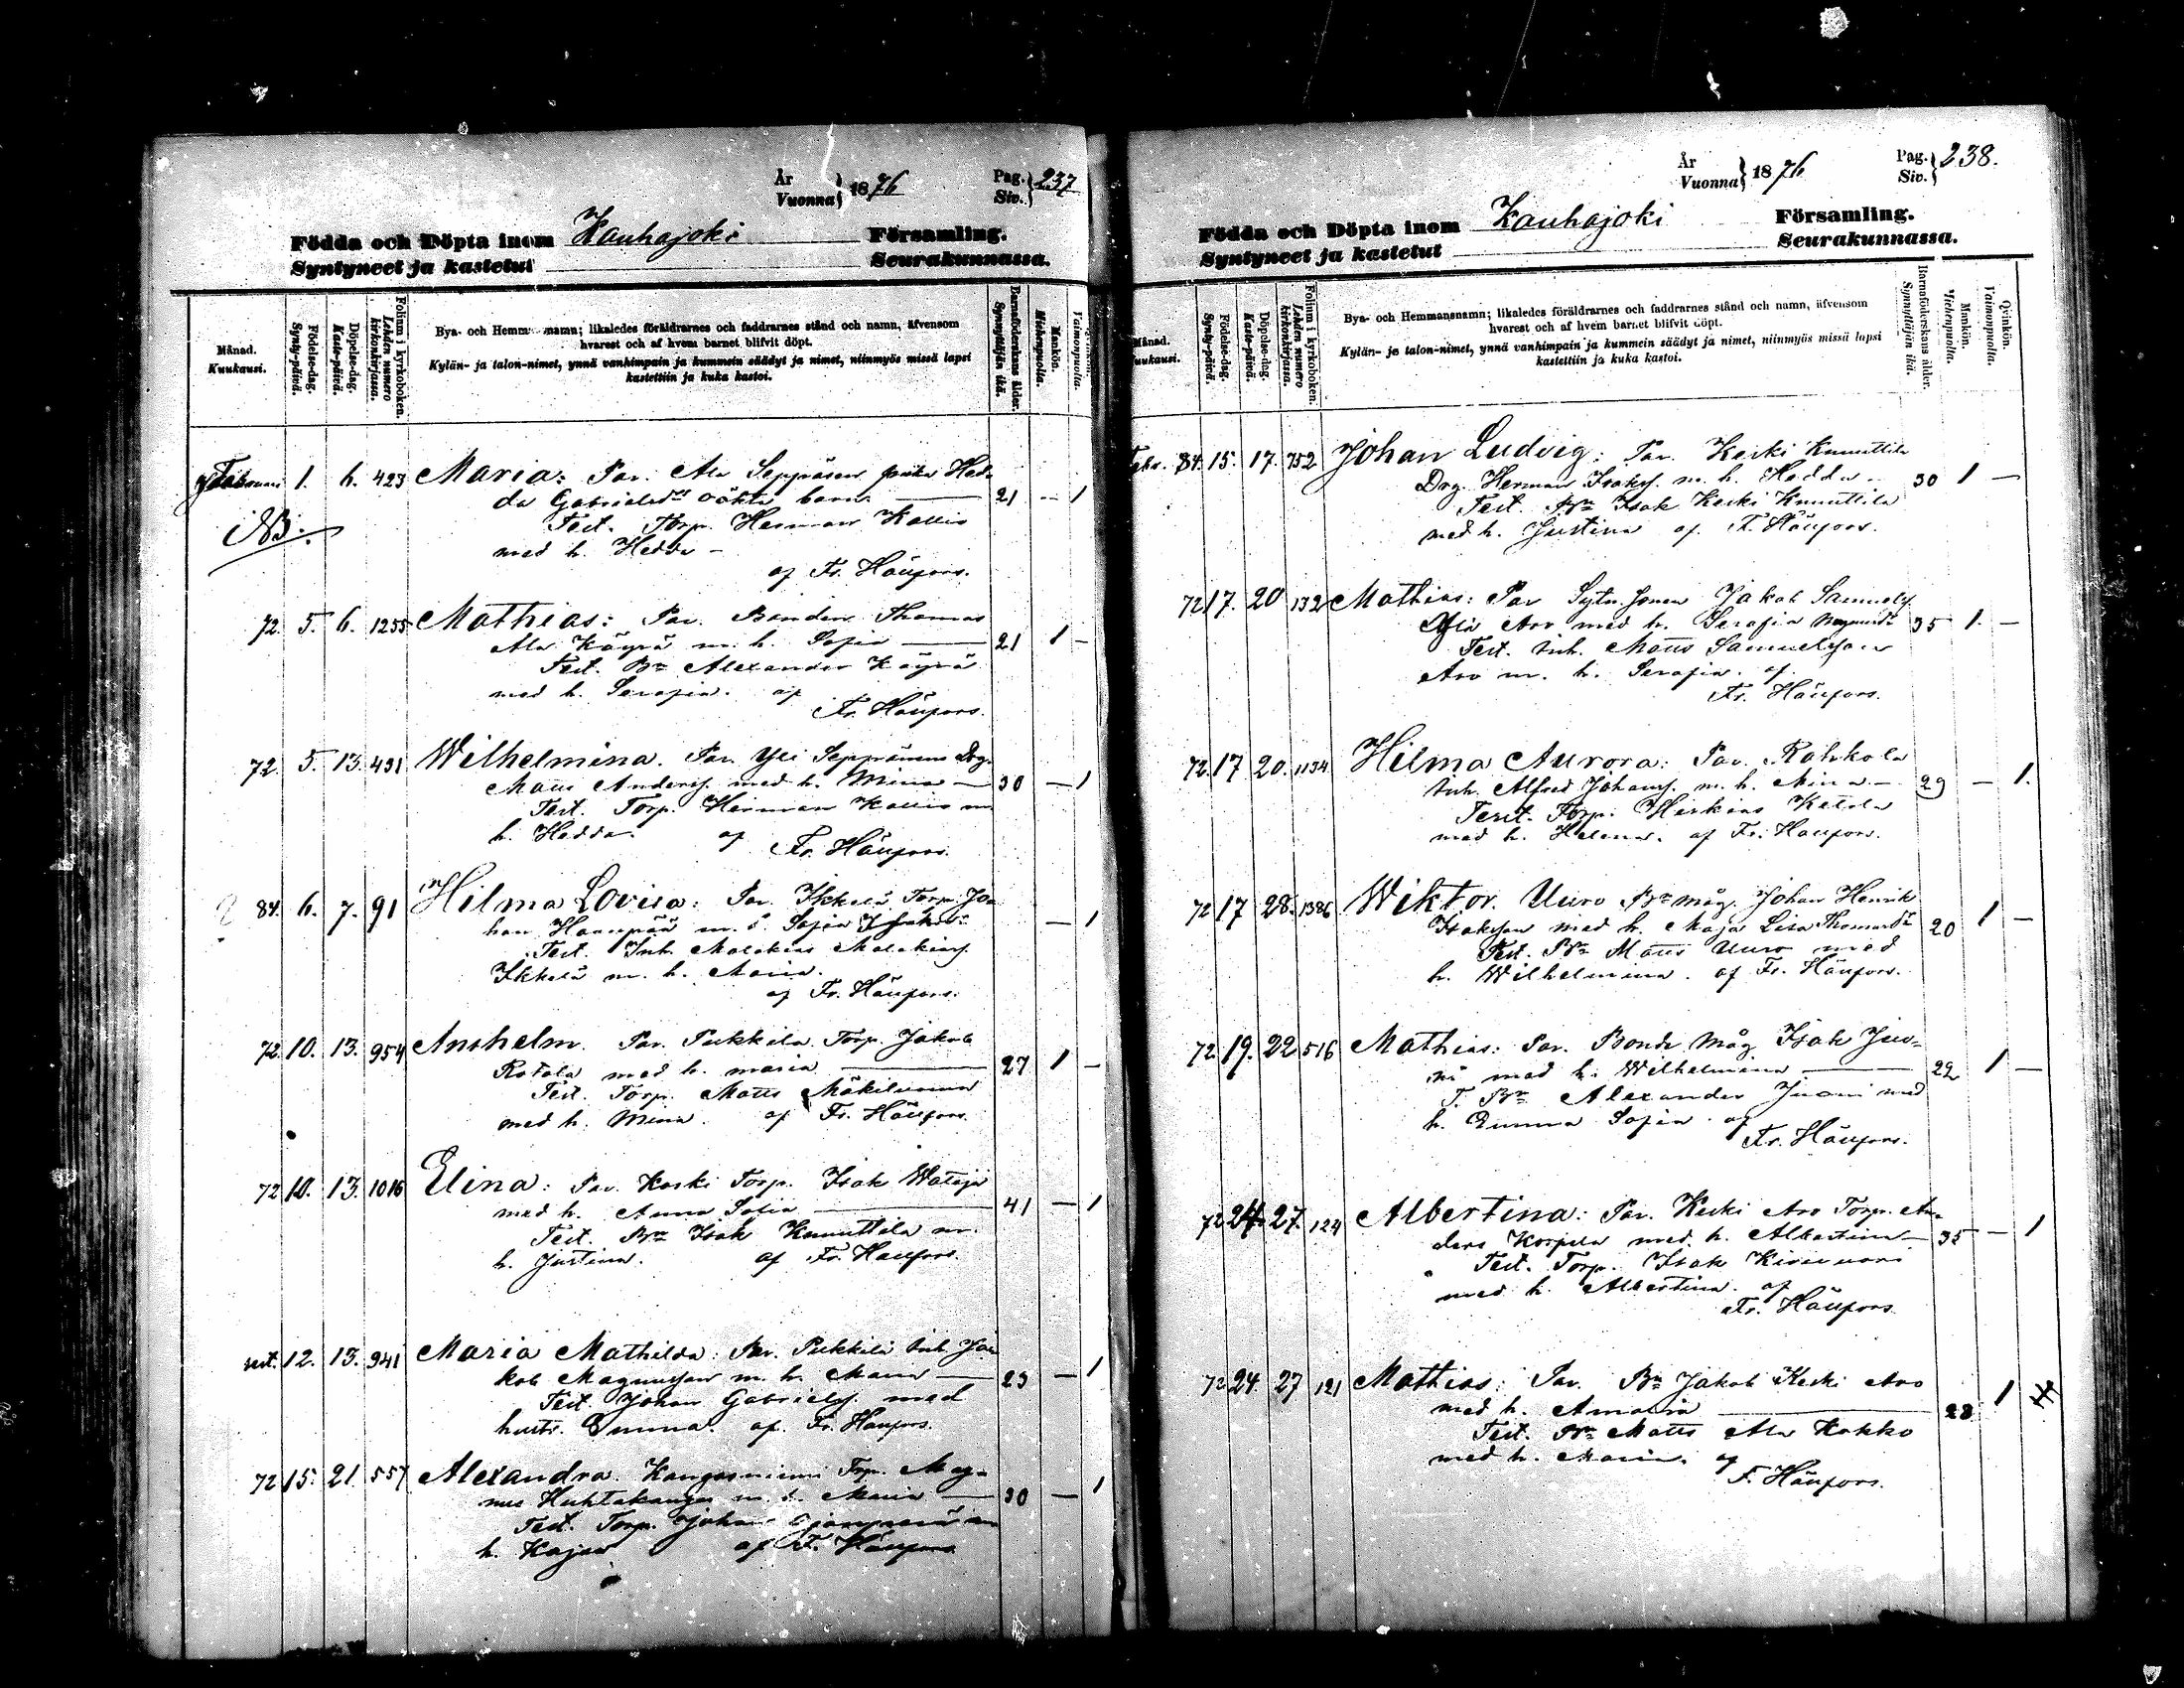 År
Vuonna } 1876
Pag.
Siv. } 237
Födda och Döpta inom Kauhajoki Församling.
Syntyneet ja kastetut Seurakunnassa.
Månad.
Kuukausi.
Födelse-dag.
Synty-päivä.
Döpelse-dag.
Kaste-päivä.
Folium i kyrkoboken.
Lehden numero kirkonkirjassa.
Bya- och Hemmansnamn; likaledes föräldrarnes och faddrarnes stånd och namn, äfvensom
hvarest och af hvem barnet blifvit döpt.
Kylän- ja talon-nimet, ynnä vanhimpain ja kummein säädyt ja nimet, niinmyös missä lapsi
kastettiin ja kuka kastoi.
Barnaföderskans ålder.
Synnyttäjän ikä.
Mankön.
Miehenpuolta.
Vaimonpuolta.
Februari 1. 6. 423 Maria: Par. Ala Seppäsen pika Hed-
da Gabrielsdr oäkta barn — 21 — 1
NB.
Test. Torp. Herman Kallio
med h. Hedda —
af Fr. Häufors.
72. 5. 6. 1255 Mathias: Par. Bonden Thomas
Ala Käyrä m. h. Sofia — 21 1 —
Test. Bn Alexander Käyrä
med h. Serafia. af
Fr. Häufors.
72. 5. 13. 431 Wilhelmina. Par. Yli Seppänen Drg.
Matts Anderss. med h. Mina — 30 — 1
Test. Torp. Herman Kallio m
h. Hedda. af
Fr. Häufors.
84. 6. 7. 91 Hilma Lovisa: Par. Ikkelä Torp. Jo-
han m. h. Sofia — 1
Test. Inh. Malakias Malakiass.
Ikkelä m. h. Maria.
af Fr. Häufors.
72. 10. 13. 954 Anshelm. Par. Pukkila Torp. Jakob
Rotola med h. Maria — 27 1 —
Test. Torp. Matts Mäkiluoma
med h. Mina. af Fr. Häufors.
72 10. 13. 1016 Elina: Par. Koski Torp. Isak Wataja
med h. Anna Sofia — 41 — 1
Test. Bn Isak Knuuttila m.
h. Justina. af Fr. Häufors.
12. 13. 941 Maria Mathilda: Par. Pukkila Inh. Ja-
kob Magnusson m. h. Maria — 23 — 1
Test. Johan Gabrielss. med
hustr. Emma. af. Fr. Häufors.
72 15. 21. 557 Alexandra. Kangasniemi Torp. Mag-
nus Huhtakangas m. h. Maria — 30 — 1
Test. Torp. Johan m
h. Kajsa af Fr. Häufors
År
Vuonna } 1876
Pag.
Siv. } 238.
Födda och Döpta inom Kauhajoki Församling.
Syntyneet ja kastetut Seurakunnassa.
Månad.
Kuukausi.
Födelse-dag.
Synty-päivä.
Döpelse-dag.
Kaste-päivä.
Folium i kyrkoboken.
Lehden numero kirkonkirjassa.
Bya- och Hemmansnamn; likaledes föräldrarnes och faddrarnes stånd och namn, äfvensom
hvarest och af hvem barnet blifvit döpt.
Kylän- ja talon-nimet, ynnä vanhimpain ja kummein säädyt ja nimet, niinmyös missä lapsi
kastettiin ja kuka kastoi.
Barnaföderskans ålder.
Synnyttäjän ikä.
Mankön.
Miehenpuolta.
Qvinkön.
Vaimonpuolta.
Febr. 84. 15. 17. 752 Johan Ludvig: Par. Keski Knuuttila
Drg. Herman Isakss. m. h. Hedda — 30 1 —
Test. Bn Isak Keski Knuuttila
med h. Justina af Fr. Häufors.
72 17. 20 132 Mathias: Par Sytn. Jakob Samuels.
Yli Aro med h. Serafia 35 1. —
Test. Inh. Matts Samuelsson
Aro m. h. Serafia. af
Fr. Häufors.
72 17 20. 1134 Hilma Aurora: Par. Rahkola
Inh. Alfred Johanss. m. h. Mina — 29 — 1.
Test. Torp. Herkias Ketola
med h. Helena. af Fr. Häufors.
72 17 28. 1386 Wiktor. Uuro Bn måg Johan Henrik
Isaksson med h. Maja Lisa Thomasdr 20 1 —
Test. Bn Matts Uuro med
h. Wilhelmina. af Fr. Häufors.
72 19. 22 516 Mathias: Par. Bonde Måg Isak Juo-
ni med h. Wilhelmina — 22 1 —
T. Bn Alexander Juoni med
h. Emma Sofia. af
Fr. Häufors.
72 24. 27. 124 Albertina: Par. Keski Aro Torp. An-
ders Korpela med. h. Albertina — 35 — 1
Test. Torp. Isak Kivivuori
med h. Albertina. af
Fr. Häufors.
72 24. 27 121 Mathias: Par. Bn Jakob Keski Aro
med h. Amalia — 28 1
Test. Bn Matts Ala Kokko
med h. Maria. af
F. Häufors.